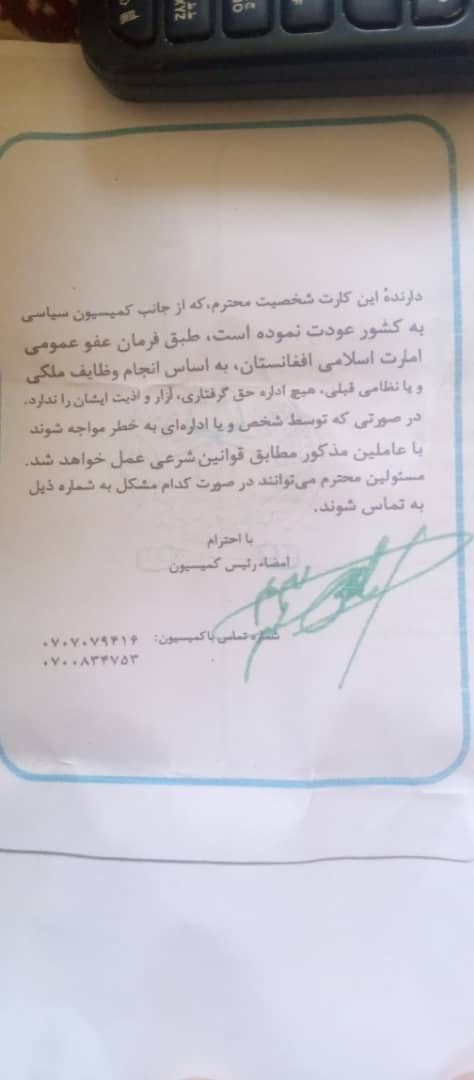 دارندهٔ این کارت شخصیت محترم،که از جانب کمیسیون سیاسی
به کشور عودت نموده است، طبق فرمان عفو عمومی
امارت اسلامی افغانستان، به اساس انجام وظایف ملکی
و یا نظامی قبلی، هیچ اداره حق گرفتاری، آزار و اذیت ایشان را ندارد.
در صورتی که توسط شخص و یا اداره‌ای به خطر مواجه شوند
با عاملین مذکور مطابق قوانین شرعی عمل خواهد شد.
مسئولین محترم می‌توانند در صورت کدام مشکل به شماره ذیل
به تماس شوند.
با احترام
امضاء رئیس کمیسیون
شماره تماس با کمیسیون: ۰۷۰۷۰۷۹۴۱۶
۰۷۰۰۸۳۴۷۵۳